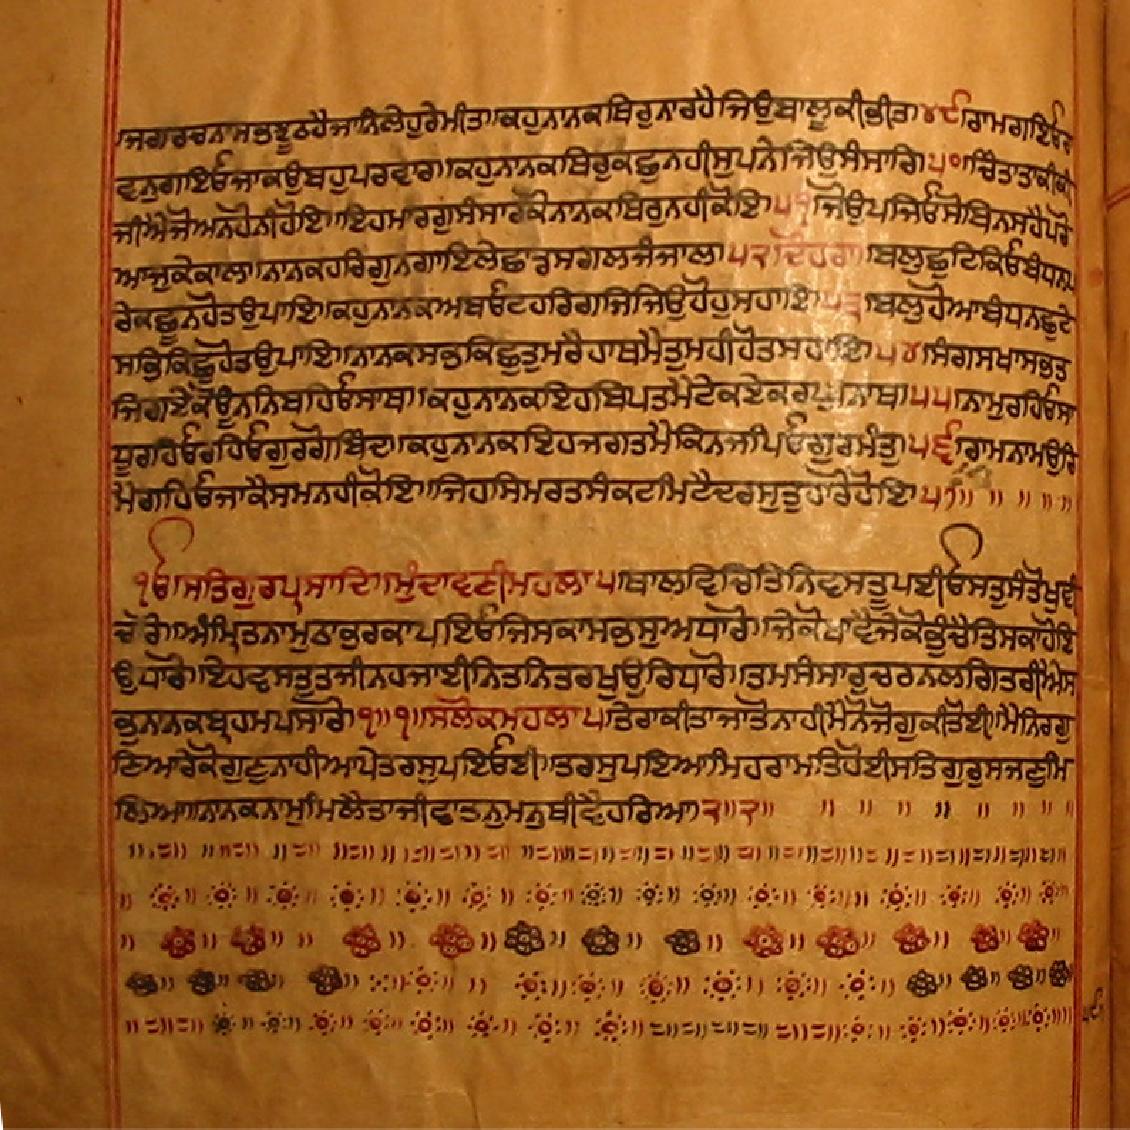 ਜਗਰਚਨਾਸਭਝੂਠਹੈਜਾਨਿਲੇਹੁਰੇਮੀਤ॥ਕਹੁਨਾਨਕਥਿਰੁਨਾਰਹੈਜਿਉਬਾਲੂਕੀਭੀਤ॥੪੯॥ਰਾਮਗਇਓਰਾ
ਵਨੁਗਇਓਜਾਕਉਬਹੁਪਰਵਾਰ॥ਕਹੁਨਾਨਕਥਿਰੁਕਛੁਨਹੀਸੁਪਨੇਜਿਉਸੰਸਾਰਿ॥੫੦॥ਚਿੰਤਾਤਾਕੀਕੀ
ਜੀਐਜੋਅਨਹੋਨੀਹੋਇ॥ਇਹਮਾਰਗੁਸੰਸਾਰਕੋਨਾਨਕਥਿਰੁਨਹੀਕੋਇ॥੫੧॥ਜੋਉਪਜਿਓਸੋਬਿਨਸਹੈਪਰੋ
ਆਜੁਕੇਕਾਲ॥ਨਾਨਕਹਰਿਗੁਨਗਾਇਲੇਛਾਡੁਸਗਲਜੰਜਾਲ॥੫੨॥ਦੋਹਰਾ॥ਬਲੁਛੁਟਿਕਿਓਬੰਧਨਪ
ਰੇਕਛੂਨਹੋਤਉਪਾਇ॥ਕਹੁਨਾਨਕਅਬਓਟਹਰਿਗਜਿਜਿਉਹੋਹੁਸਹਾਇ॥੫੩॥ਬਲੁਹੋਆਬੰਧਨਛੁਟੇ
ਸਭੁਕਿਛੁਹੋਤਉਪਾਇ॥ਨਾਨਕਸਭੁਕਿਛੁਤੁਮਰੈਹਾਥਮੈਤੁਮਹੀਹੋਤਸਹਾਇ॥੫੪॥ਸੰਗਸਖਾਸਭਤ
ਜਿਗਏਕੋਊਨਨਿਬਹਿਓਸਾਥ॥ਕਹੁਨਾਨਕਇਹਬਿਪਤਮੈਟੇਕਏਕਰਘੁਨਾਥ॥੫੫॥ਨਾਮੁਰਹਿਓਸਾ
ਧੂਰਹਿਓਰਹਿਓਗੁਰਗੋਬਿੰਦ॥ਕਹੁਨਾਨਕਇਹਜਗਤਮੈਕਿਨਜਪਿਓਗੁਰਮੰਤੁ॥੫੬॥ਰਾਮਨਾਮਉਰਿ
ਮੈਗਹਿਓਜਾਕੈਸਮਨਹੀਕੋਇ॥ਜਿਹਸਿਮਰਤਸੰਕਟਮਿਟੈਦਰਸੁਤੁਹਾਰੋਹੋਇ॥੫੭॥ ॥ ॥ ॥ ॥
੧ਓ॥ਸਤਿਗੁਰਪ੍ਰਸਾਦਿ॥ਮੁੰਦਾਵਣੀਮਹਲਾ੫॥ਥਾਲਵਿਚਿਤਿੰਨਿਵਸਤੂਪਈਓਸਤੁਸੰਤੋਖੁਵੀ
ਚਾਰੋ॥ਅੰਮ੍ਰਿਤਨਾਮੁਠਾਕੁਰਕਾਪਇਓਜਿਸਕਾਸਭਸੁਅਧਾਰੋ॥ਜੇਕੋਖਾਵੈਜੇਕੋਭੁੰਚੈਤਿਸਕਾਹੋਇ
ਉਧਾਰੋ॥ਏਹਵਸਤੁਤਜੀਨਹਜਾਈਨਿਤਨਿਤਰਖੁਉਰਿਧਾਰੋ॥ਤਮਸੰਸਾਰੁਚਰਨਲਗਿਤਰੀਐਸ
ਭੁਨਨਕਬ੍ਰਹਮਪਸਾਰੋ॥੧॥੧॥ਸਲੋਕਮਹਲਾ੫॥ਤੇਰਾਕੀਤਾਜਾਤੋਨਾਹੀਮੈਨੋਜੋਗੁਕੀਤੋਈ॥ਮੈਨਿਰਗੁ
ਣਿਆਰੇਕੋਗੁਣੁਨਾਹੀਆਪੇਤਰਸੁਪਇਓਈ॥ਤਰਸੁਪਇਆਮਿਹਰਾਮਤਿਹੋਈਸਤਿਗੁਰੁਸਜਣੁਮਿ
ਲਿਆ॥ਨਾਨਕਨਾਮੁਮਿਲੈਤਾਜੀਵਾਤਨੁਮਨੁਥੀਵੈਹਰਿਆ॥੨॥੨॥ ॥ ॥ ॥ ॥ ॥ ॥ ॥ ॥